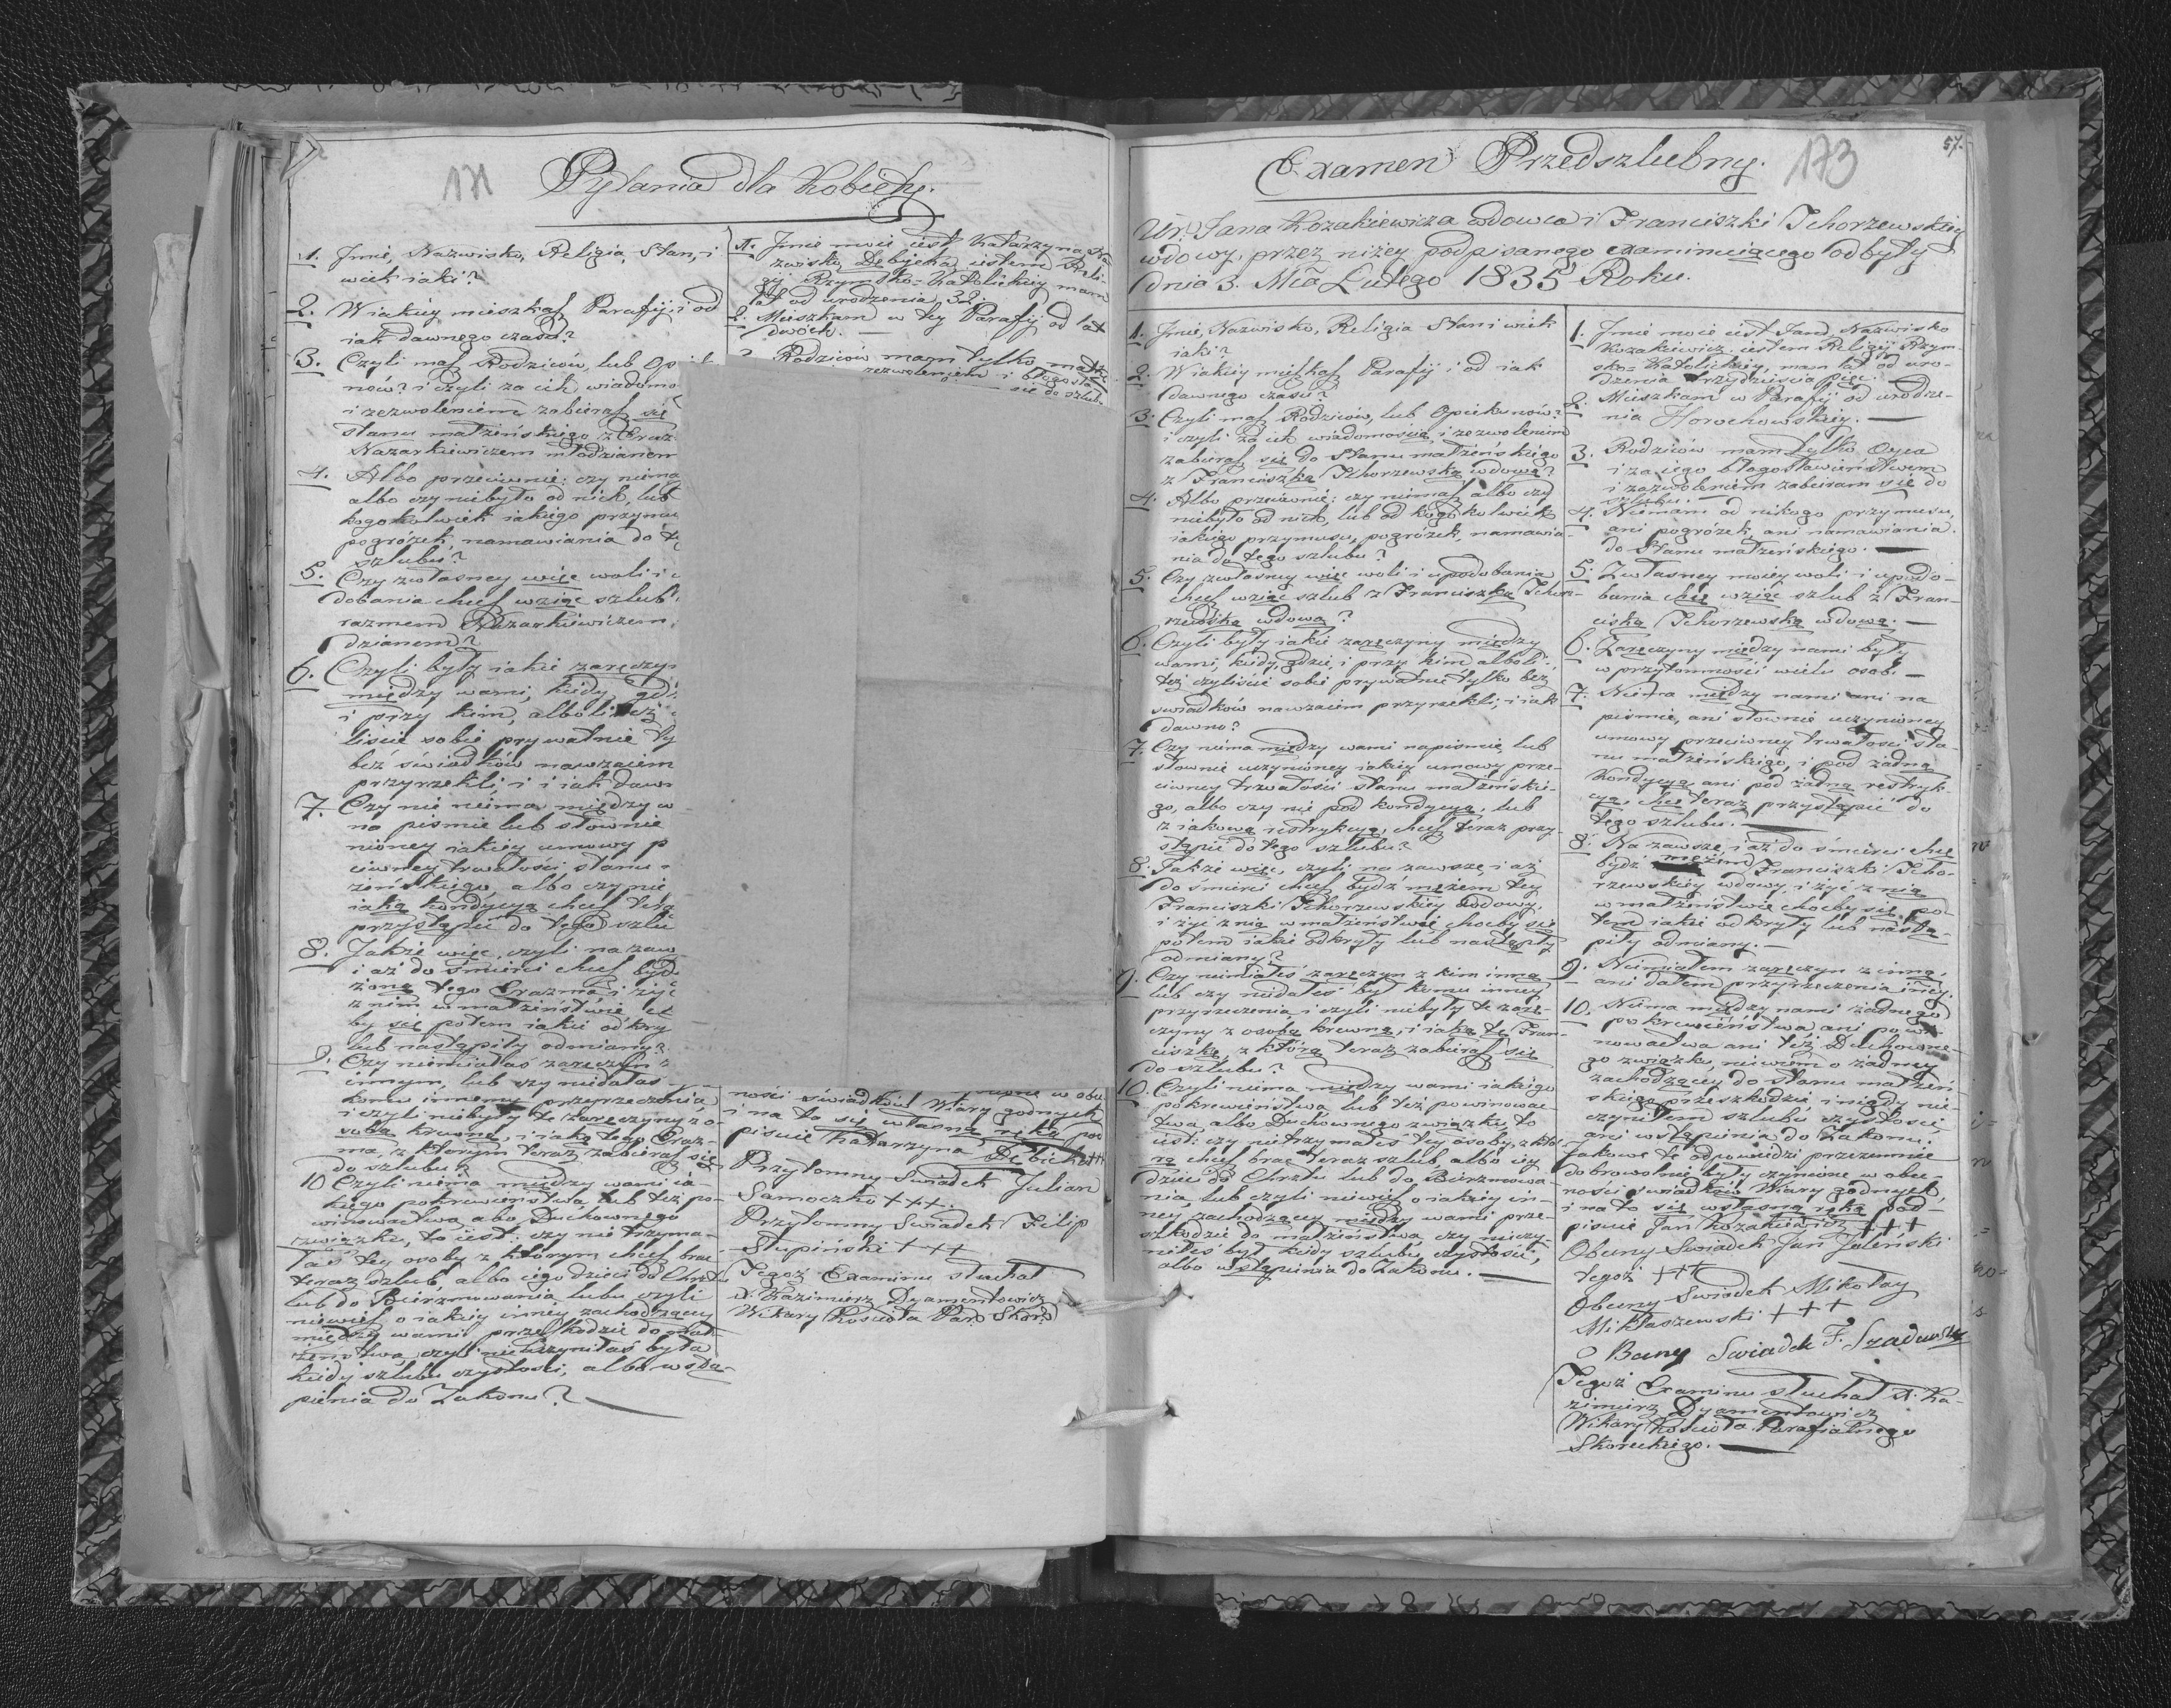 171
Pytania dla Kobiety.
1. Jmie, Nazwisko, Religia, Stan, i
wiek iaki?
2. Wiakiey mieszkasz Parafij, i od
iak dawnego czasu?
3. Czyli masz Rodziców, lub Op
nów? i czyli za ich wiadomo
i zezwoleniem zabierasz się
stanu małżeńskiego z Eraz
Nazarkiewiczem młodzianem
4. Albo przeciwnie: czy niema
albo czy niebyło od nich, lub
kogokolwiek iakiego przymu
pogróżek, namawiania do te
szlubu?
5. Czy zwłasney więc woli i u
dobania chcesz wziąć szlub
razmem Nazarkiewiczem
dzianem?
6. Czyli były iakie zaręczyn
między wami, kiedy, gdz
i przy kim, alboli też
liście sobie prywatnie ty
béz świadków nawzaiem
przyrzekli, i iak dawn
7. Czy nie niema między w
na pismie lub słownie
nioney iakiey umowy p
ciwney trwałości stanu
żeńskiego, albo czy nie
iaką kondycyą chcesz tera
przystąpić do tego szlu
8. Jakże więc, czyli na zaw
i aż do śmierci chcesz bydź
żoną tego Erazma i żyć
z nim w małżeństwie ch
by się potem iakie odkry
lub nastąpiły odmiany?
9. Czy niemiałaś zaręczyn z
innym, lub czy niedałaś
komu innemu przyrzeczenia,
i czyli niebyły te zaręczyny z o-
sobą krewną, i iaką tego Eraz-
ma, z którym teraz zabierasz się
do szlubu?
10 Czyli niema między wami ia-
kiego pokrewieństwa, lub też po-
winowactwa, abo Duchownego
związku, to iest: czy nie trzyma-
łaś tey osoby z którym chcesz brac
teraz szlub, albo iego dzieci do Chrztu
lub do Bierzmowania lubu czyli
niewiesz o iakiey inney zachodzącey
między wami przeszkodzie do mał-
żeństwa, czyli nieuczyniłaś była
kiedy szlubu czystości, albo wstą-
pienia do Zakonu?
1. Jmie moie iest Katarzyna Na-
zwisko Dębicka, iestem Reli-
gij Rzymsko-Katolickiey mam
lat od urodzenia 32.
2. Mieszkam w tey Parafij od lat
dwóch.
Rodziców mam tylko matkę
zezwoleniem i błogosła
się do szlubu
ności świadków Wiary godnych
i na to się własną ręką pod
pisuie Katarzyna Dębicka +++
Przytomny Swiadek Julian
Samoczko +++
Przytomny Swiadek Filip
Słupiński +++
Tegoż Examinu słuchał
X. Kazimierz Dyamentowicz
Wikary Kościoła Par: Skor:
57.
Examen Przedszlubny. 173
Ur: Jana Kozakiewicza wdowca i Franciszki Tchorzewskiey
wdowy, przez niżey podpisanego examinuiącego odbyty
dnia 3. Mca Lutego 1835 Roku.
1. Jmie, Nazwisko, Religia Stan i wiek
iaki?
2. Wiakiey mieszkasz Parafij i od iak
dawnego czasu?
3. Czyli masz Rodziców, lub Opiekunów?
i czyli za ich wiadomością i zezwoleniem
zabierasz się do Stanu małżeńskiego
z Franciszką Tchorzewską wdową?
4. Albo przeciwnie: czy niemasz albo czy
niebyło od nich, lub od kogokolwiek
iakiego przymusu, pogróżek, namawia-
nia do tego szlubu?
5. Czy zwłasney więc woli i upodobania
chcesz wziąć szlub z Franciszką Tchor-
rzewską wdową?
6. Czyli były iakie zaręczyny między
wami, kiedy, gdzie, i przy kim alboli
też czyliście sobie prywatnie tylko bez
swiadków nawzaiem przyrzekli, i iak
dawno?
7. Czy niema między wami napismie, lub
słownie uczynioney iakiey umowy prze-
ciwney trwałości stanu małżeńskie-
go, albo czy nie pod kondycyą, lub
z iakową restrykcyą, chcesz teraz przy-
stąpić do tego szlubu?
8. Jakże więc, czyli na zawsze, i aż
do śmierci chcesz bydź mężem tey
Franciszki Tchorzewskiey wdowy,
i żyć z nią w małżeństwie choćby się
potem iakie odkryły lub nastąpiły
odmiany?
9. Czy niemiałeś zaręczyn z kim inną
lub czy niedałeś był komu inney
przyrzeczenia, i czyli niebyły te zarę-
czyny z osobą krewną, i iaką tę Fran-
ciszkę, z którą teraz zabierasz się
do szlubu?
10. Czyli niema między wami iakiego
pokrewieństwa, lub też powinowac-
twa, albo Duchownego związku, to
iest: czy nietrzymałeś tey osoby, z któ-
rą chcesz brac teraz szlub, albo iey
dzieci do Chrztu lub do Bierzmowa-
nia, lub czyli niewiesz o iakiey in-
ney, zachodzącey między wami prze-
szkodzie do małżeństwa, czy nieuczy-
niłeś był kiedy szlubu czystości,
albo wstąpienia do Zakonu.
1. Jmie moie iest Jan, Nazwisko
Kozakiewicz: iestem Religij Rzym-
sko-Katolickiey, mam lat od uro-
dzenia trzydzieścia pięć.
2. Mieszkam w Parafij od urodze-
nia Horochowskiey.
3. Rodziców mam tylko Oyca
i za iego błogosławieństwem
i zezwoleniem zabieram się do
szlubu.
4. Niemam od nikogo przymusu,
ani pogróżek, ani namawiania
do Stanu małżeńskiego.
5. Zwłasney moiey woli i upodo-
bania chcę wziąć szlub z Fran-
ciszką Tchorzewską wdową.
6. Zaręczyny między nami były
w przytomności wielu osób.
7. Niema między nami ani na
pismie, ani słownie uczynioney
umowy przeciwney trwałości sta-
nu małżeńskiego, i pod żadną
Kondycyą ani pod żadną restryk-
cyą, chcę teraz przystąpić do
tego szlubu.
8. Na zawsze, i aż do śmierci chcę
bydź mężem Franciszki Tcho-
rzewskiey wdowy, i żyć z nią
w małżeństwie choćby się po-
tem iakie odkryły lub nastą-
piły odmiany.
9. Niemiałem zaręczyn z inną,
ani dałem przyrzeczenia iney.
10. Niema między nami żadnego
pokrewieństwa, ani powi-
nowactwa ani też Duchowne-
go związku, niewiem o żadney
zachodzącey do stanu małżeń
skiego przeszkodzie, i nigdy nie-
czyniłem szlubu czystości
ani wstąpienia do Zakonu.
Jakowe te odpowiedzi przezemnie
dobrowolnie były czynione w obec-
ności swiadków Wiary godnych,
i na to się własną ręką pod-
pisuie Jan Kozakiewicz +++
Obecny Swiadek Jan Jeleński
tegoż +++
Obecny Swiadek Mikołay
Mikłaszewski +++
O Becny Swiadek F. Szadurski
Tegoż Examinu słuchał X. Ka-
zimierz Dyamentowicz
Wikary Kościoła Parafialnego
Skoreckiego.